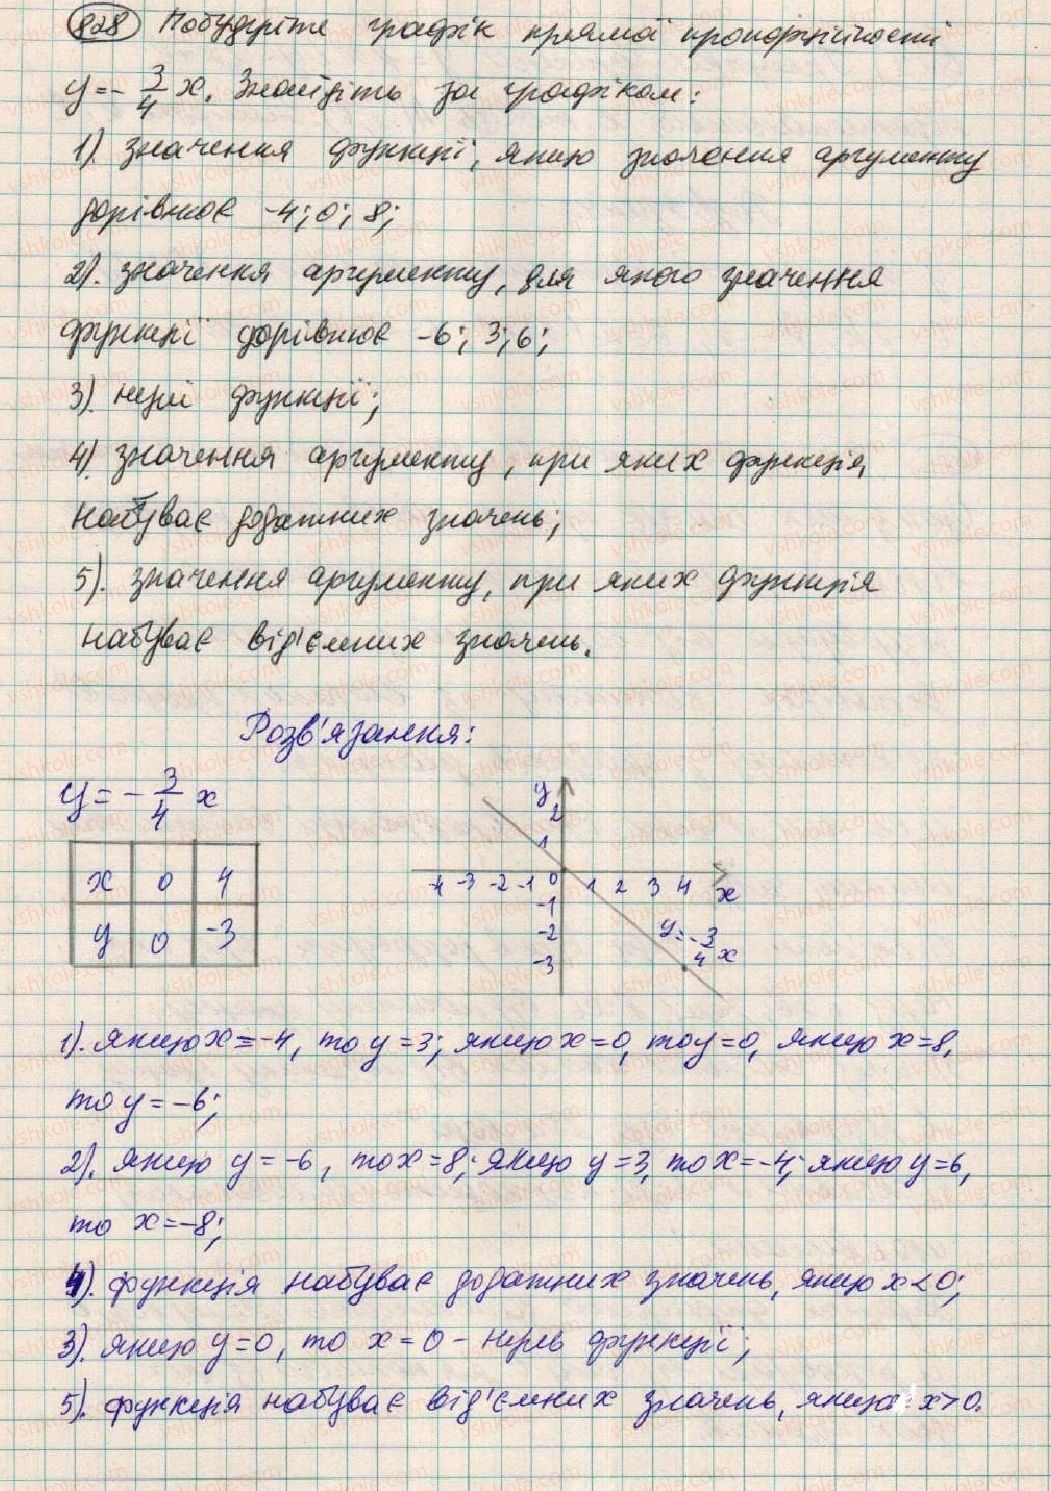 828 Побудуйте графік прямої пропорційності
y = - 3/4 x. Знайдіть за графіком:
1). значення функції, якщо значення аргументу
дорівнює -4; 0; 8;
2). значення аргументу, для якого значення
функції дорівнює -6; 3; 6;
3). нулі функції;
4). значення аргументу, при яких функція
набуває додатних значень;
5). значення аргументу, при яких функція
набуває від'ємних значень.
Розв'язання:
y = - 3/4 x
x 0 4
y 0 -3
y
2
1
-4 -3 -2 -1 0 1 2 3 4 x
-1
-2
-3
y = - 3/4 x
1). якщо x = -4, то y = 3; якщо x = 0, то y = 0, якщо x = 8,
то y = -6;
2). якщо y = -6, то x = 8; якщо y = 3, то x = -4; якщо y = 6,
то x = -8;
4). функція набуває додатних значень, якщо x < 0;
3). якщо y = 0, то x = 0 - нуль функції;
5). функція набуває від'ємних значень, якщо x > 0.